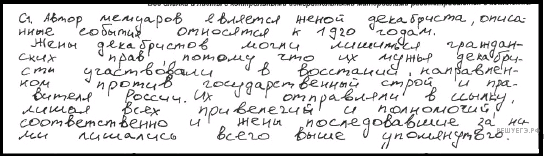 С1. Автор мемуаров является женой декабриста, описан-
ные события относятся к 1920 годам.
Жены декабристов могли лишится граждан-
ских прав, потому что их мужья декабри-
сты участвовали в восстании, направлен-
ном против государственный строй и пра-
вителя России. Их отправляли в ссылку,
лишая всех привелегий и полномочий,
соответственно и жены последовавшие за ни-
ми лишались всего выше упомянутого.
РЕШУЕГЭ.РФ